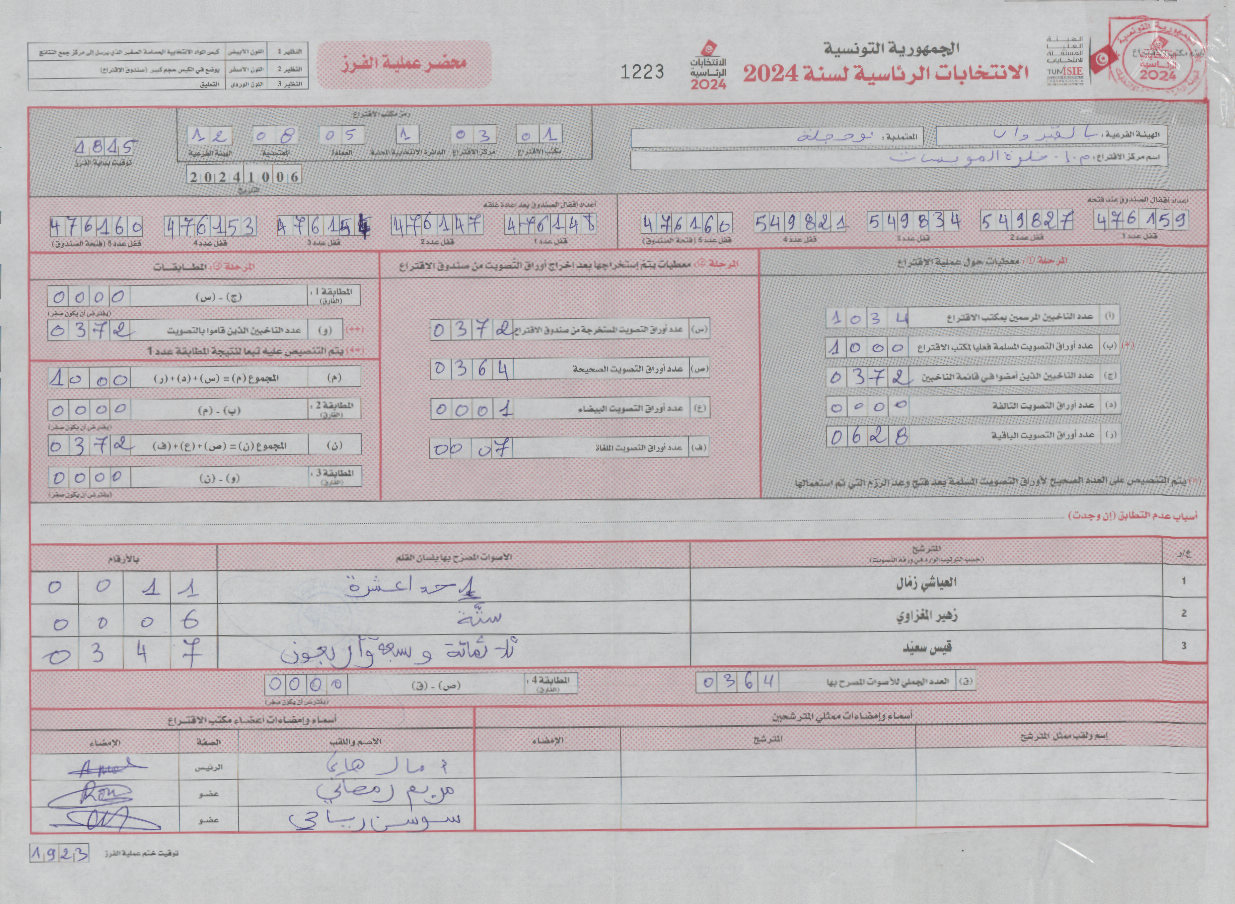 الجمهورية التونسية
الانتخابات الرئاسية لسنة 2024
الهيئة العليا المستقلة للانتخابات
TUNISIE
الانتخابات الرئاسية 2024
1223
محضر عملية الفرز
النظير 1 اللون الأبيض كيس المواد الانتخابية الحساسة الصغير الذي يرسل إلى مركز جمع النتائج
النظير 2 اللون الأصفر يوضع في الكيس حجم كبير (صندوق الاقتراع)
النظير 3 اللون الوردي التعليق
الهيئة الفرعية: القيروان المعتمدية: بوحجلة
اسم مركز الاقتراع:
رمز مكتب الاقتراع
01 03 1 05 08 12
مكتب الاقتراع مركز الاقتراع الدائرة الانتخابية المحلية العمادة المعتمدية الهيئة الفرعية
20241006
التاريخ
1815
توقيت بداية الفرز
أعداد أقفال الصندوق عند فتحه
476159 549827 549834 549821 476160
قفل عدد 1 قفل عدد 2 قفل عدد 3 قفل عدد 4 قفل عدد 5 (فتحة الصندوق)
أعداد أقفال الصندوق بعد إعادة غلقه
476148 476147 476154 476153 476160
قفل عدد 1 قفل عدد 2 قفل عدد 3 قفل عدد 4 قفل عدد 5 (فتحة الصندوق)
المرحلة ①: معطيات حول عملية الاقتراع
(أ) عدد الناخبين المرسمين بمكتب الاقتراع 1034
(*) (ب) عدد أوراق التصويت المسلمة فعليا لمكتب الاقتراع 1000
(ج) عدد الناخبين الذين أمضوا في قائمة الناخبين 0372
(د) عدد أوراق التصويت التالفة 0000
(ر) عدد أوراق التصويت الباقية 0628
(*) يتم التنصيص على العدد الصحيح لأوراق التصويت المسلمة بعد فتح وعد الرزم التي تم استعمالها
المرحلة ②: معطيات يتم إستخراجها بعد إخراج أوراق التصويت من صندوق الاقتراع
(س) عدد أوراق التصويت المستخرجة من صندوق الاقتراع 0372
(ص) عدد أوراق التصويت الصحيحة 0364
(ع) عدد أوراق التصويت البيضاء 0001
(ف) عدد أوراق التصويت الملغاة 0007
المرحلة ③: المطابقات
المطابقة 1: (الفارق) (ج) - (س) 0000
(يفترض أن يكون صفر)
(**) (و) عدد الناخبين الذين قاموا بالتصويت 0372
(**) يتم التنصيص عليه تبعا لنتيجة المطابقة عدد 1
(م) المجموع (م) = (س) + (د) + (ر) 1000
المطابقة 2: (الفارق) (ب) - (م) 0000
(يفترض أن يكون صفر)
(ن) المجموع (ن) = (ص) + (ع) + (ف) 0372
المطابقة 3: (الفارق) (و) - (ن) 0000
(يفترض أن يكون صفر)
أسباب عدم التطابق (إن وجدت)
ع/د المترشح الأصوات المصرح بها بلسان القلم بالأرقام
(حسب الترتيب الوارد في ورقة التصويت)
1 العياشي زمّال احد اعشرة 0011
2 زهير المغزاوي ستّة 0006
3 قيس سعيّد ثلاثمائة وسبعة وأربعون 0347
(ق) العدد الجملي للأصوات المصرح بها 0364
المطابقة 4: (الفارق) (ص) - (ق) 0000
(يفترض أن يكون صفر)
أسماء وإمضاءات ممثلي المترشحين
إسم ولقب ممثل المترشح المترشح الإمضاء
أسماء وإمضاءات أعضاء مكتب الاقتراع
الاسم واللقب الصفة الإمضاء
الرئيس
مريم رمضاني عضو
سوسن رياحي عضو
توقيت ختم عملية الفرز 1923